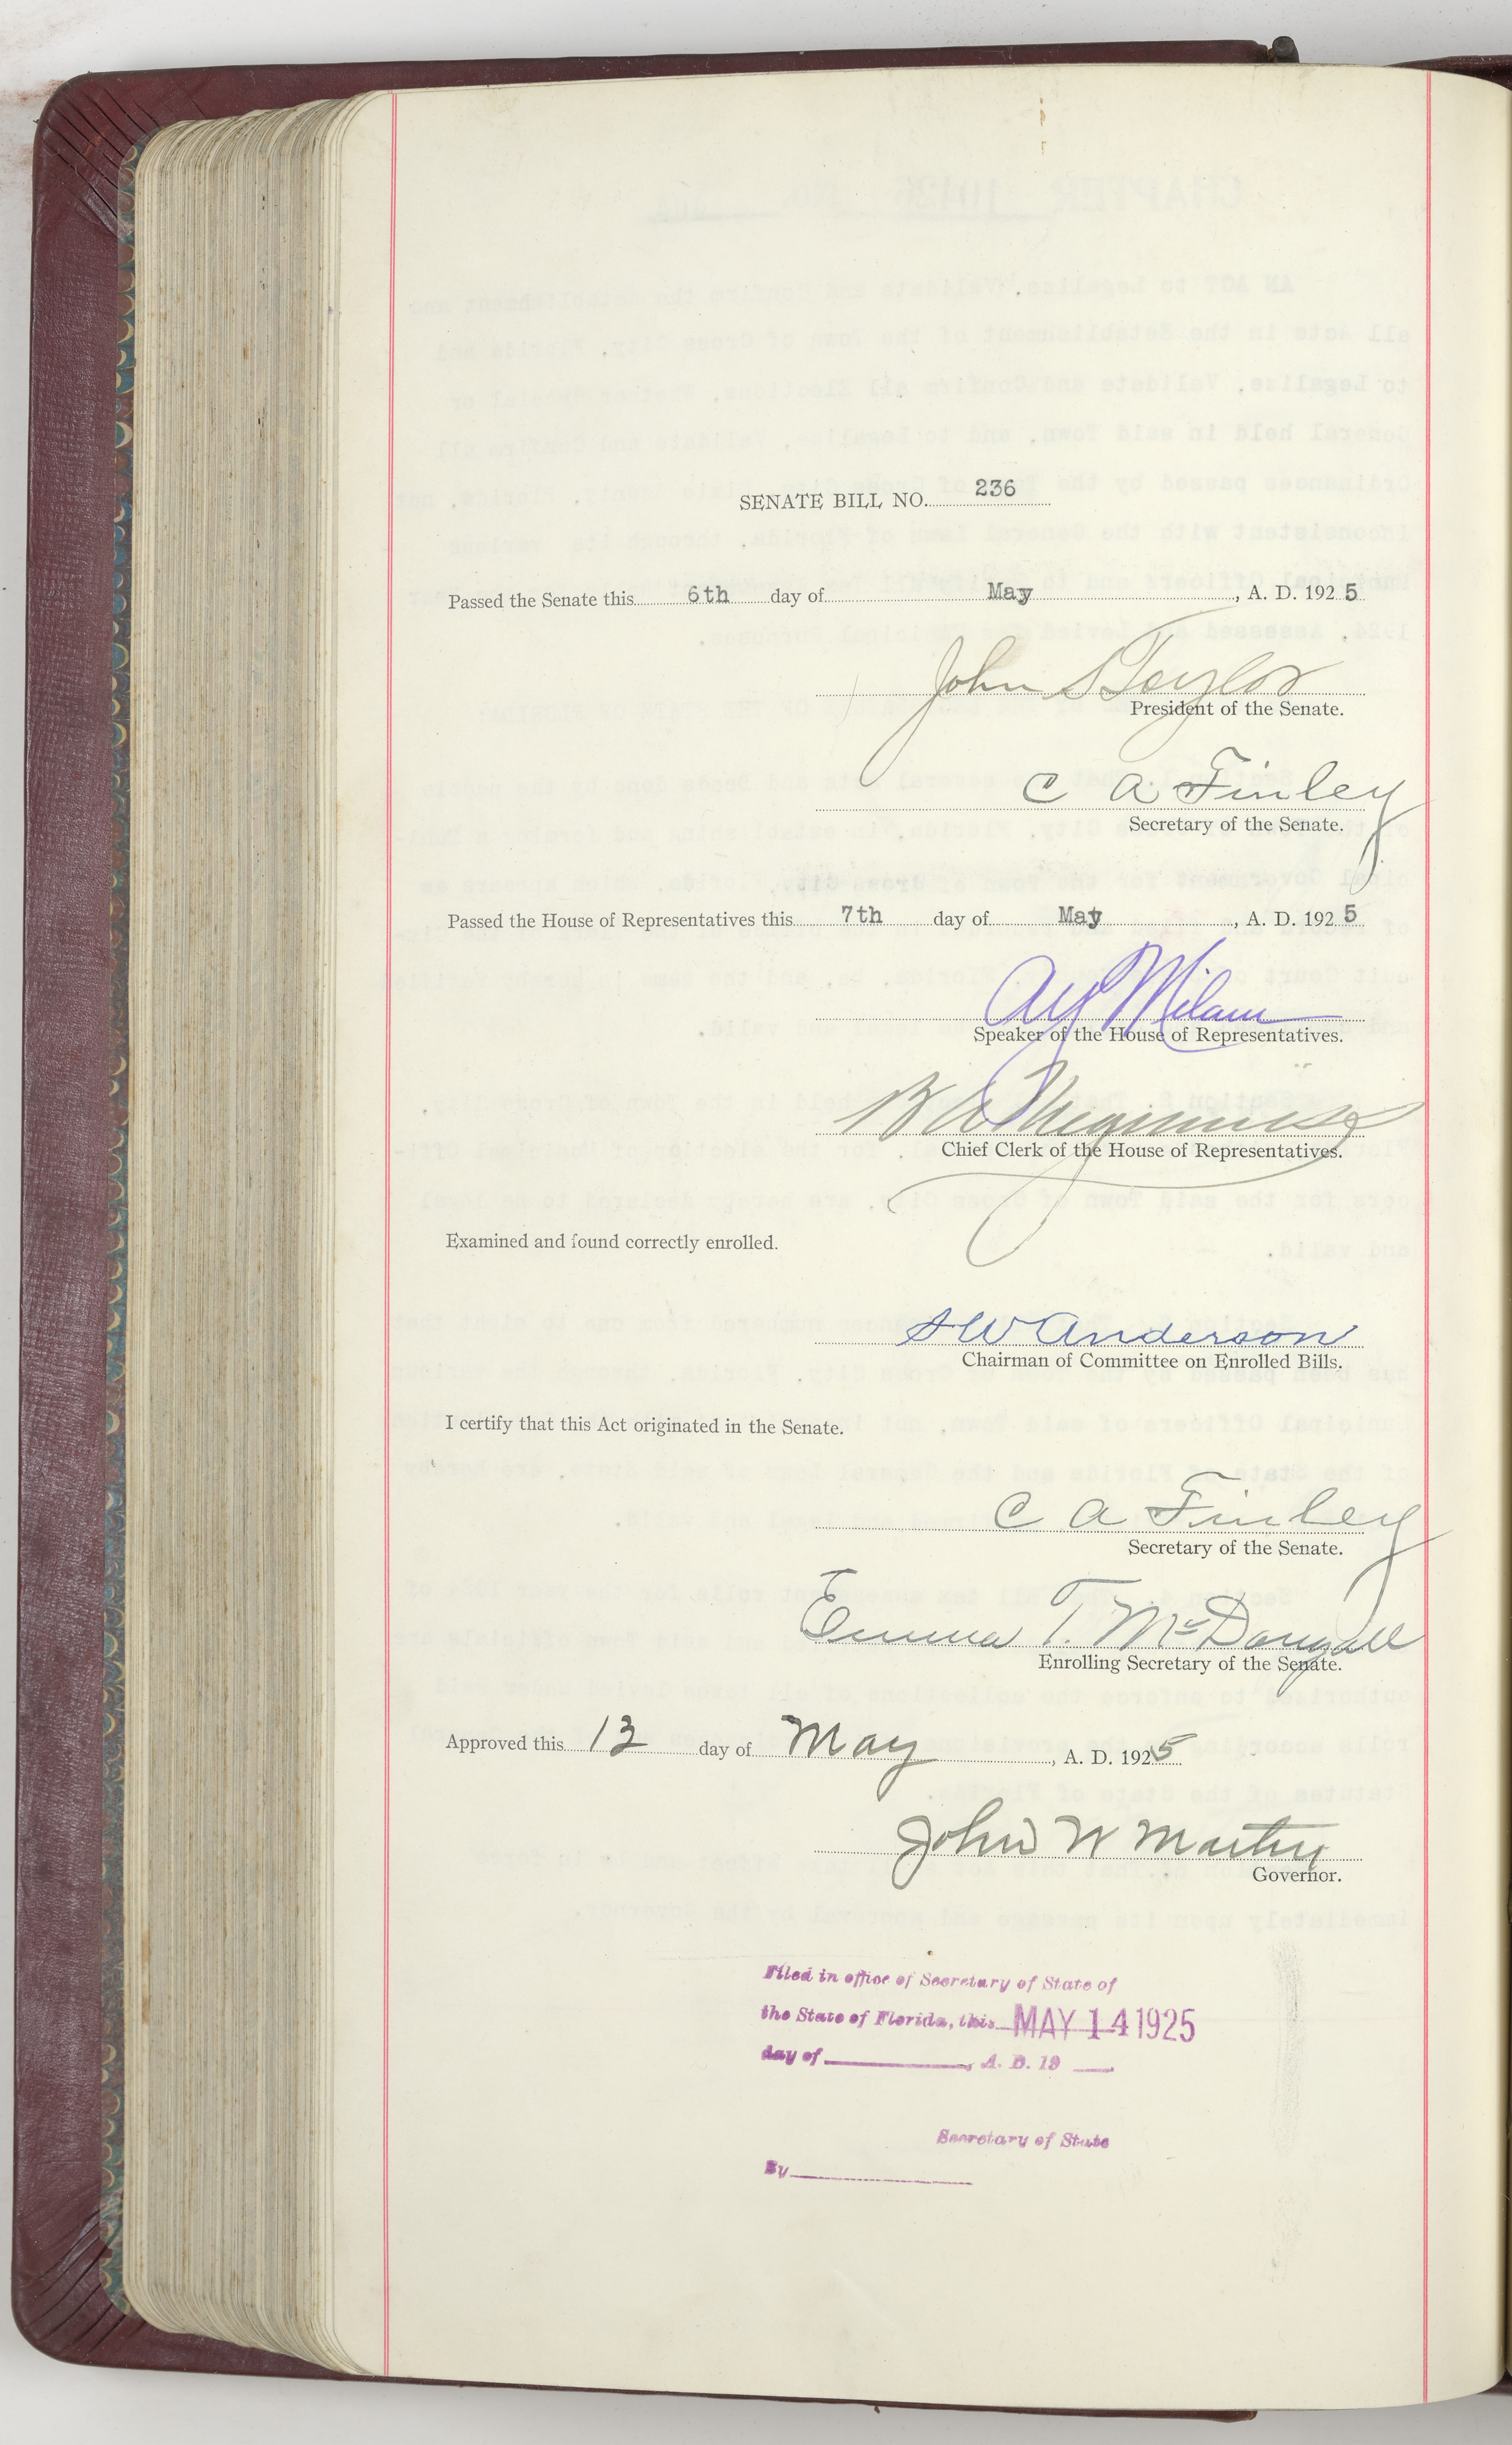 SENATE BILL NO. 236
Passed the Senate this 6th day of May, A. D. 1925
John S Taylor
President of the Senate.
C A Finley
Secretary of the Senate.
Passed the House of Representatives this 7th day of May, A. D. 1925
AY Milam
Speaker of the House of Representatives.
B A Meginniss
Chief Clerk of the House of Representatives.
Examined and found correctly enrolled.
SW Anderson
Chairman of Committee on Enrolled Bills.
I certify that this Act originated in the Senate.
C A Finley
Secretary of the Senate.
Emma T. McDougall
Enrolling Secretary of the Senate.
Approved this 13 day of May, A. D. 1925
John W Martin
Governor.
Filed in office of Secretary of State of
the State of Florida, this MAY 14 1925
day of , A. D. 19
Secretary of State
By